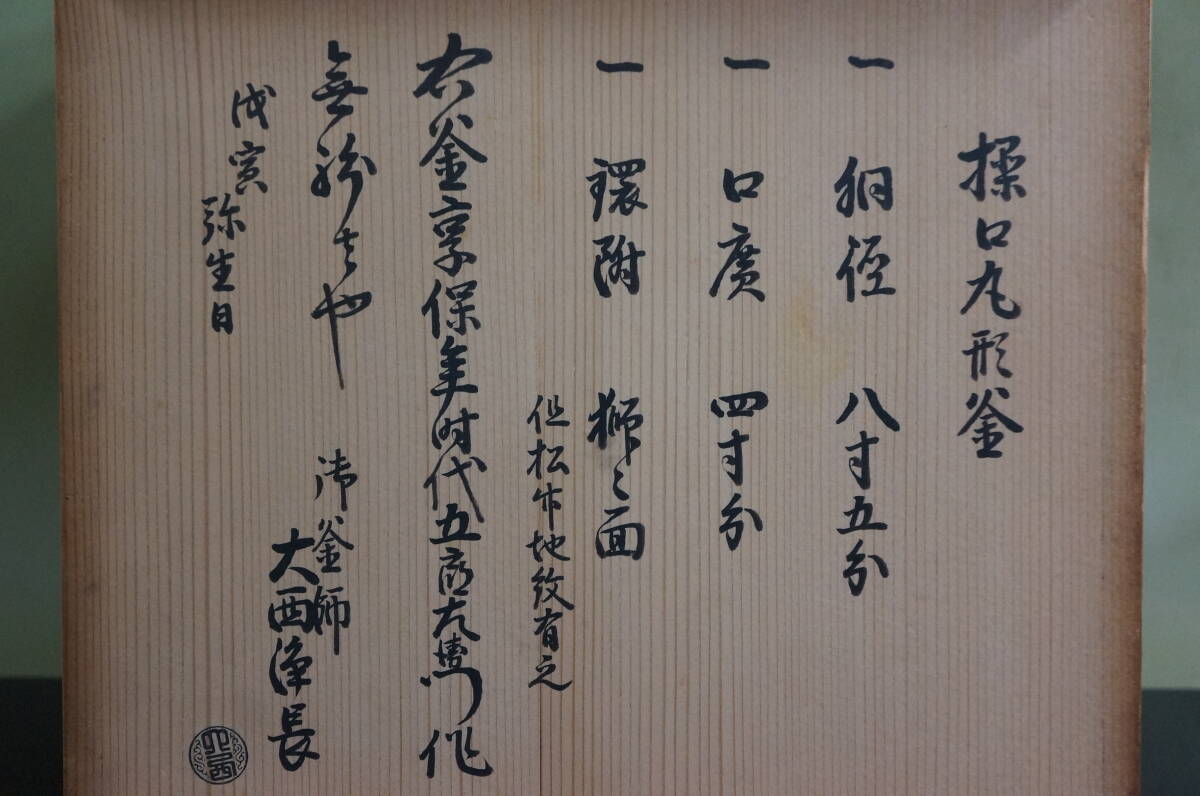 操口丸形釜
一 胴径 八寸五分
一 口廣 四寸分
一 環附 獅〻面
但松竹地紋有之
右釜享保年時代五郎左衛門作
無紛者也
御釜師
大西浄長
戊寅
弥生日
大西